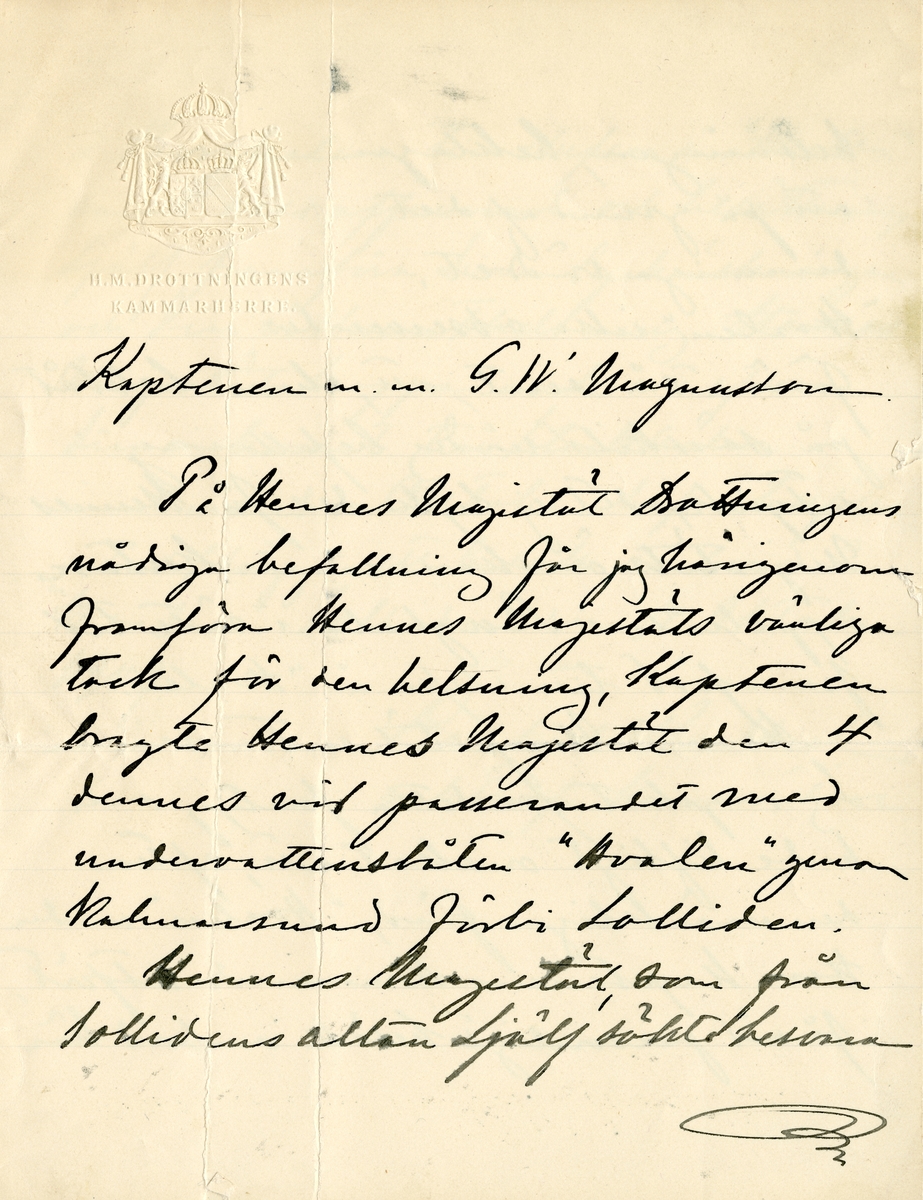 H.M. DROTTNINGENS
KAMMARHERRE.
Kaptenen m. m. G. W. Magnusson.
På Hennes Majestät Drottningens
nådiga befallning får jag härigenom
framföra Hennes Majestäts vänliga
tack för den helsning, Kaptenen
bragte Hennes Majestät den 4
dennes vid passerandet med
undervattensbåten "Hvalen" genom
Kalmarsund förbi Solliden.
Hennes Majestät, som från
Sollidens altan Själf sökte besvara